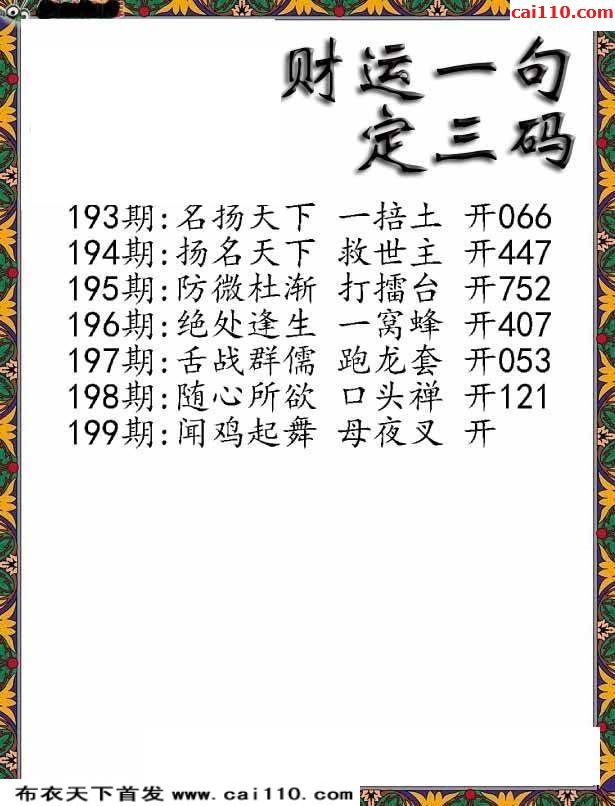 cai110.com
财运一句
定三码
193期:名扬天下 一掊土 开066
194期:扬名天下 救世主 开447
195期:防微杜渐 打擂台 开752
196期:绝处逢生 一窝蜂 开407
197期:舌战群儒 跑龙套 开053
198期:随心所欲 口头禅 开121
199期:闻鸡起舞 母夜叉 开
布衣天下首发 www.cai110.com